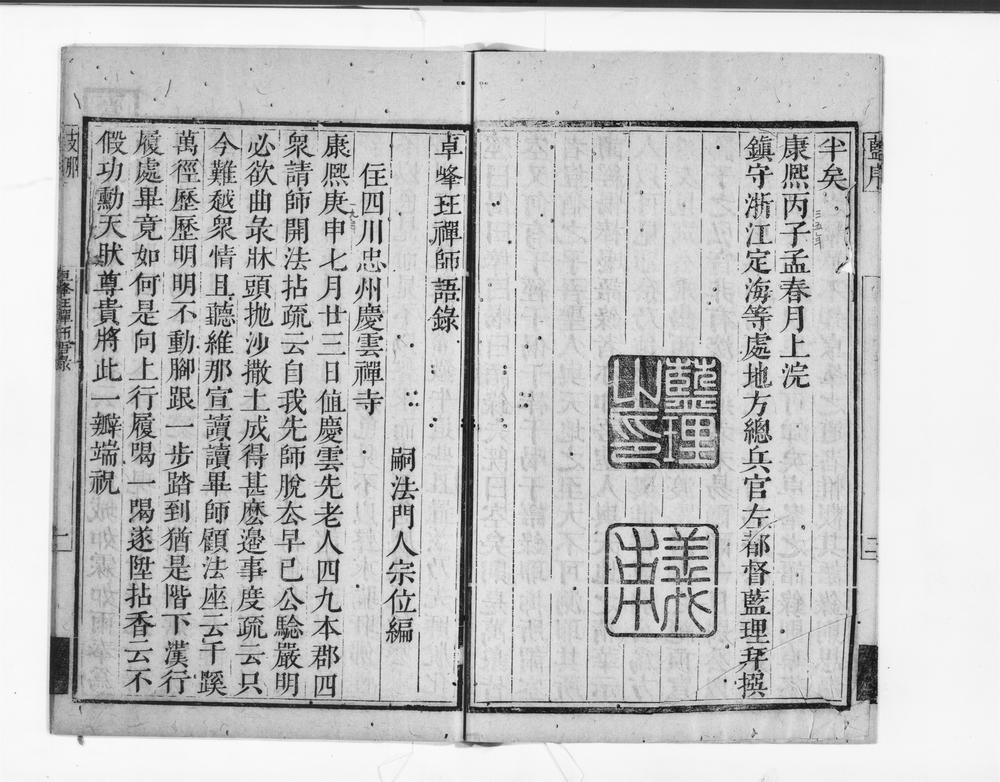 藍序
半矣
康熈丙子孟春月上浣
三五年
鎮守浙江定海等處地方總兵官左都督藍理拜撰
藍理之印
義莊
二
卓峰珏禪師語錄
嗣法門人宗位編
住四川忠州慶雲禪寺
康熈庚申七月廿三日値慶雲先老人四九本郡四
衆請師開法拈疏云自我先師脫去早已公驗嚴明
必欲曲彔牀頭抛沙撒土成得甚麽邊事度疏云只
今難越衆情且聽維那宣讀讀畢師顧法座云千蹊
萬徑歷歷明明不動腳跟一步踏到猶是階下漢行
履處畢竟如何是向上行履喝一喝遂陞拈香云不
假功勳天狀尊貴將此一瓣端祝
卓峰珏禪師語錄
一